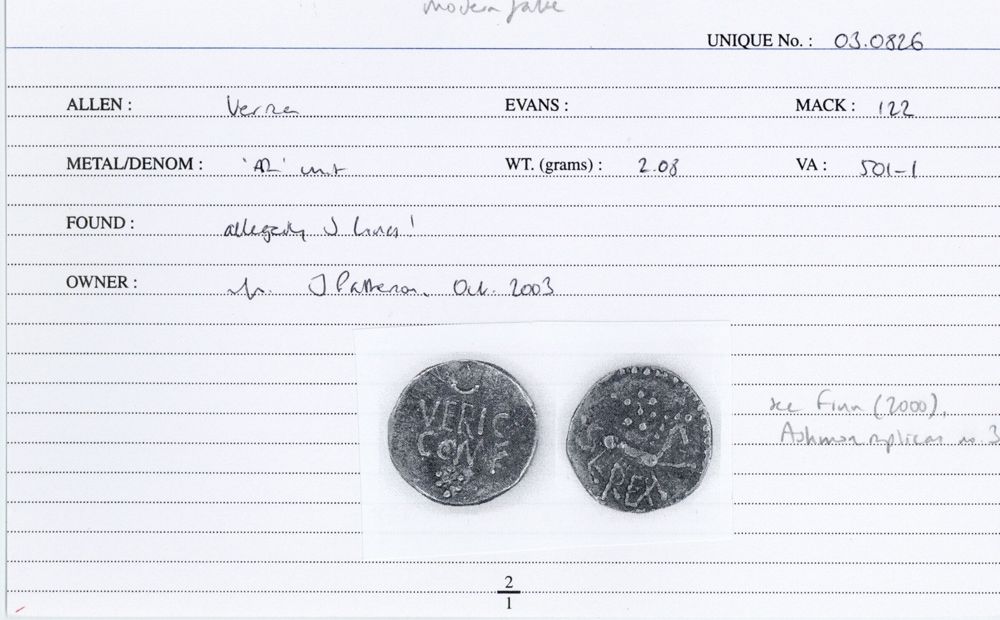 modern fake
UNIQUE No. : 03.0826
ALLEN : Verica EVANS : MACK : 122
METAL/DENOM : 'AR' unit WT. (grams) : 2.08 VA : 501-1
FOUND : allegedly
OWNER : J Patterson, Oct. 2003
VERIC
COM F
REX
see Finn (2000),
replicas no. 3
2
1